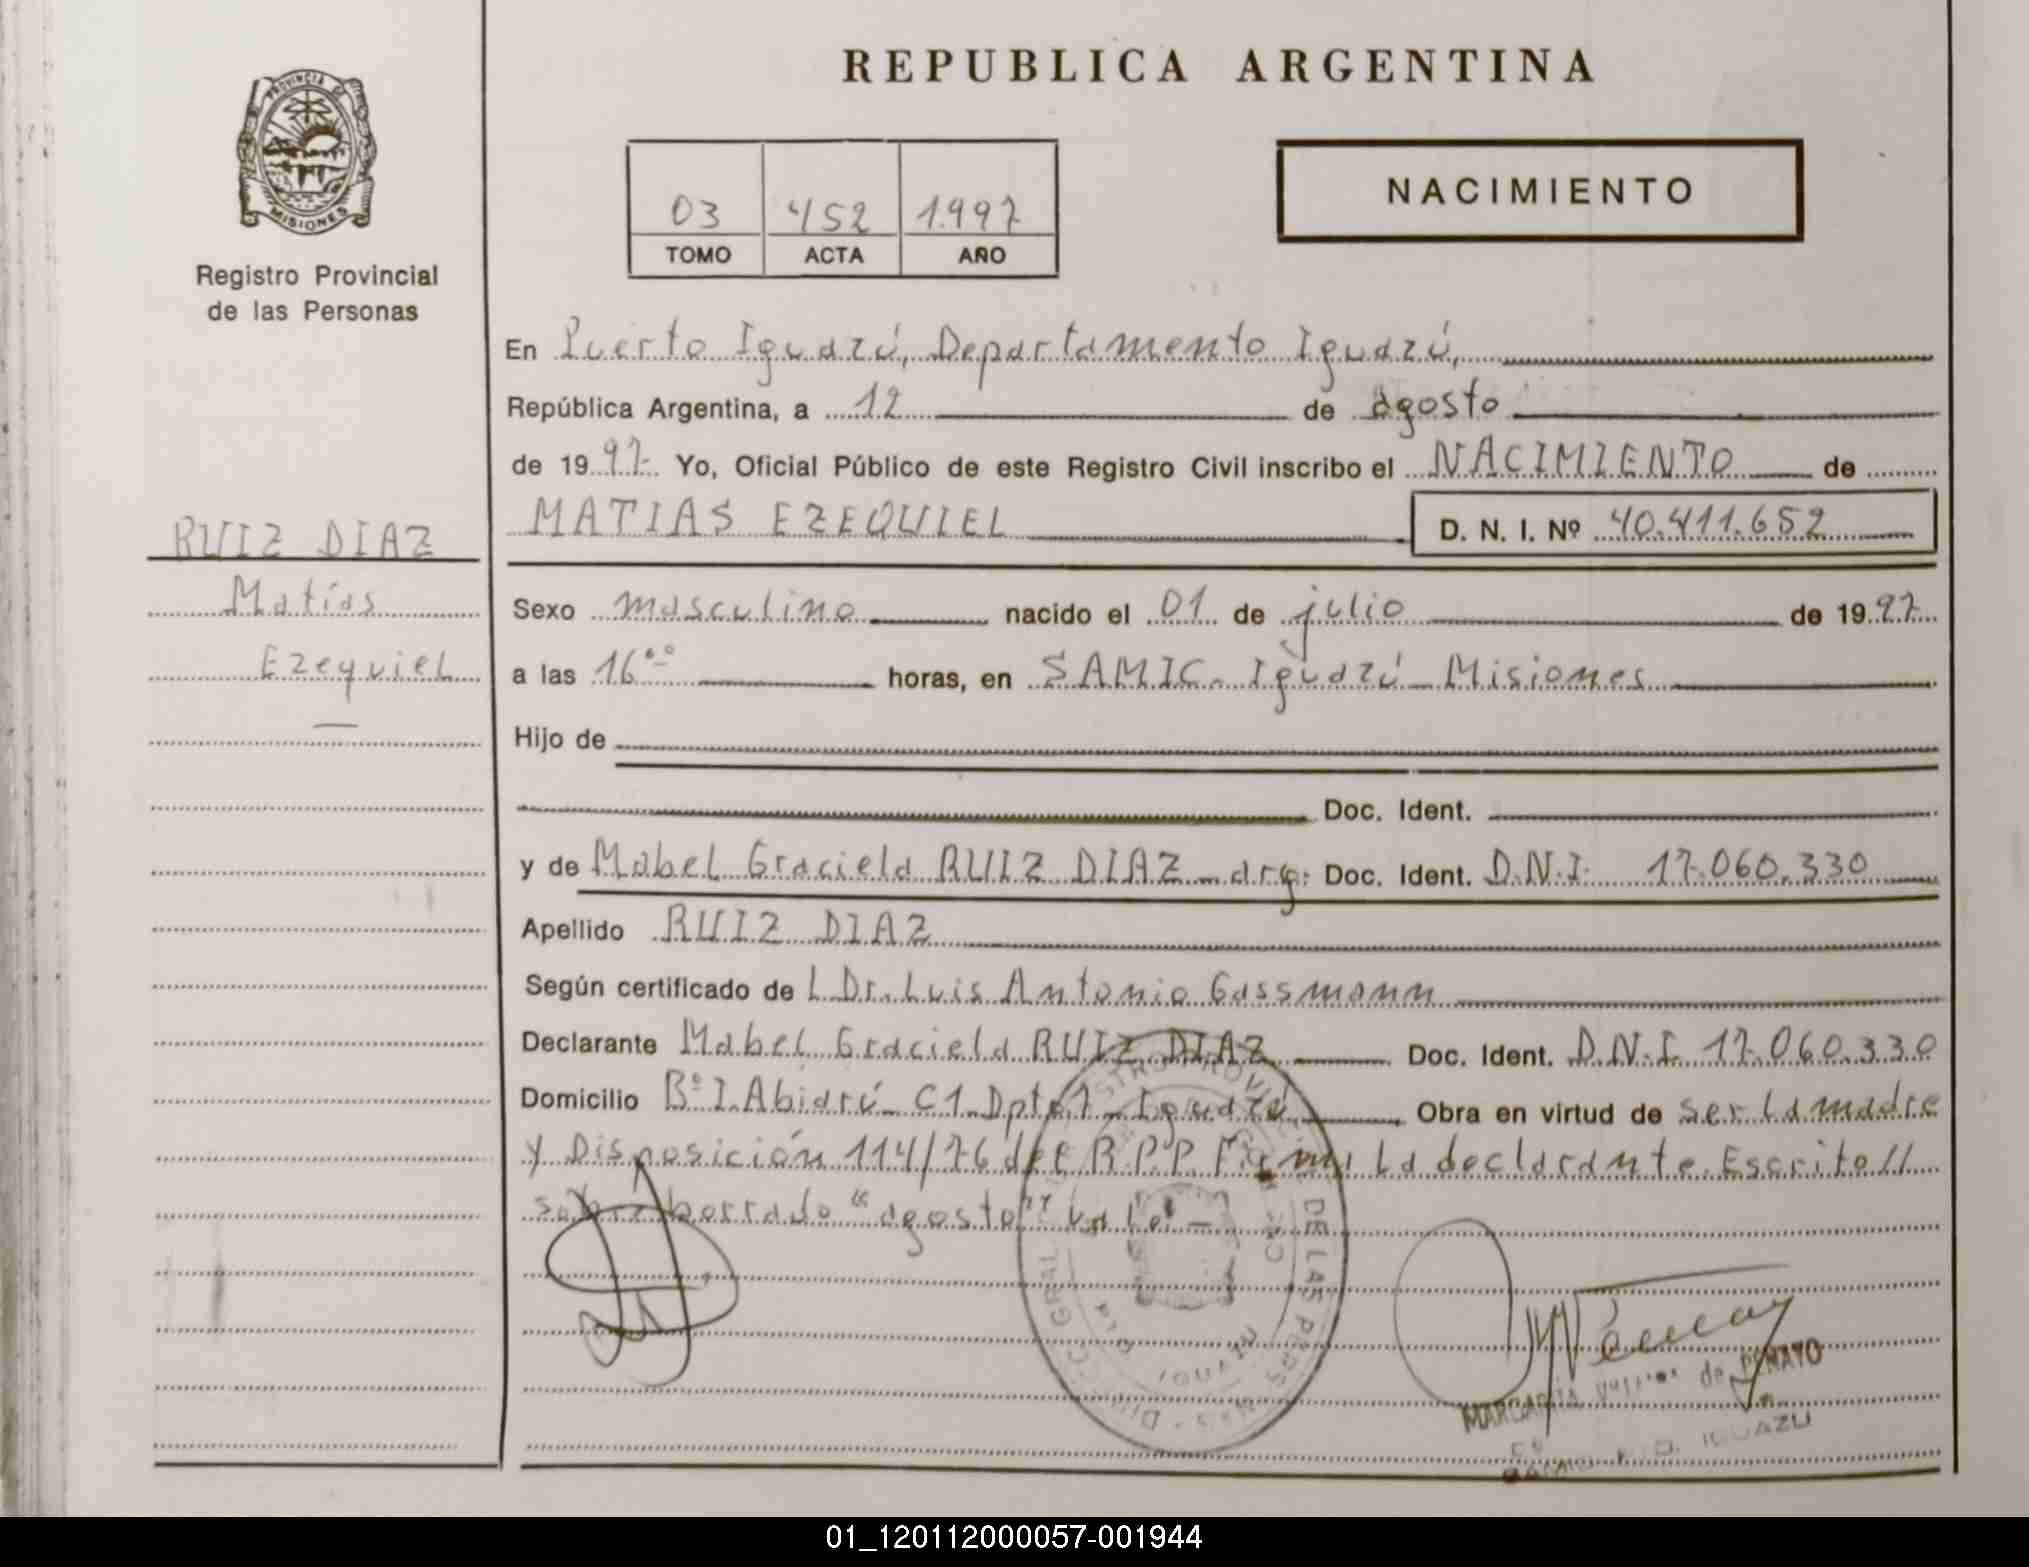 REPUBLICA ARGENTINA
PROVINCIA DE
MISIONES
Registro Provincial
de las Personas
03 452 1.997
TOMO ACTA AÑO
NACIMIENTO
En Puerto Iguazú, Departamento Iguazú,
República Argentina, a 12 de agosto
de 1997 Yo, Oficial Público de este Registro Civil inscribo el NACIMIENTO de
MATIAS EZEQUIEL D. N. I. Nº 40.411.652
RUIZ DIAZ
Matías
Ezequiel
Sexo masculino nacido el 01 de julio de 1997
a las 16ºº horas, en SAMIC. Iguazú - Misiones
Hijo de
Doc. Ident.
y de Mabel Graciela RUIZ DIAZ - arg. Doc. Ident. D.N.I. 17.060.330
Apellido RUIZ DIAZ
Según certificado de L Dr. Luis Antonio Gassmann
Declarante Mabel Graciela RUIZ DIAZ Doc. Ident. D.N.I. 17.060.330
Domicilio Bº I. Abiarú - C1 Dpto 1 - Iguazú Obra en virtud de ser la madre
y Disposición 114/76 del R.P.P. Firma la declarante. Escrito //
sobre borrado "agosto" Vale. -
DE LAS PERSONAS
MARGARITA de PENAYO
IGUAZU
01_120112000057-001944